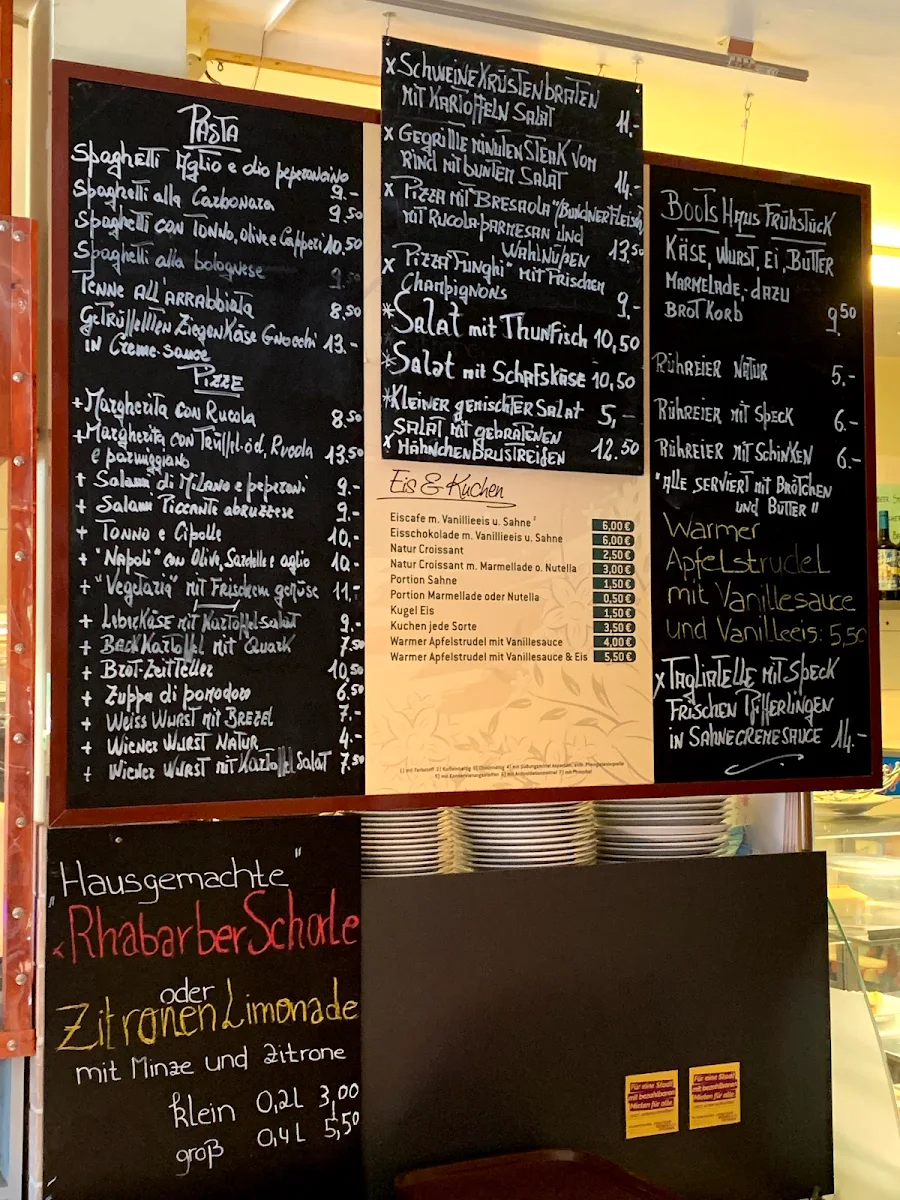 PASTA
Spaghetti Aglio e olio peperoncino 9.-
Spaghetti alla Carbonara 9,50
Spaghetti con Tonno, olive e Capperi 10,50
Spaghetti alla bolognese 9,50
Penne all'arrabbiata 8,50
Getrüffelten Ziegenkäse Gnocchi 13.-
in Creme-sauce
PIZZE
+ Margherita con Rucola 8,50
+ Margherita con Trüffel od. Rucola 13,50
e parmiggiano
+ Salami di Milano e peperoni 9.-
+ Salami Piccante abruzzese 9.-
+ Tonno e Cipolle 10.-
+ "Napoli" con Olive, Sardelle e aglio 10.-
+ "Vegetaria" mit Frischem gemüse 11,-
+ Leberkäse mit Kartoffelsalat 9.-
+ Back Kartoffel mit Quark 7.-
+ Brot-Zeit Teller 10,50
+ Zuppa di pomodoro 6,50
+ Weiss Wurst mit Brezel 7.-
+ Wiener Wurst Natur 4.-
+ Wiener Wurst mit Kartoffel Salat 7,50
x Schweinekrüstenbraten
mit Kartoffeln Salat 11.-
x Gegrillte minuten Steak vom
Rind mit bunten Salat 14.-
x Pizza mit Bresaola "Bündner Fleisch"
mit Rucola-parmesan und
Wahlnußen 13,50
x Pizza "Funghi" mit Frischen
Champignons 9.-
* Salat mit Thunfisch 10,50
* Salat mit Schafskäse 10,50
* Kleiner gemischter Salat 5,-
x Salat mit gebratenen
Hähnchenbrustreifen 12.50
Eis & Kuchen
Eiscafe m. Vanillieeis u. Sahne ² 6,00 €
Eisschokolade m. Vanillieeis u. Sahne 6,00 €
Natur Croissant 2,50 €
Natur Croissant m. Marmellade o. Nutella 3,00 €
Portion Sahne 1,50 €
Portion Marmellade oder Nutella 0,50 €
Kugel Eis 1,50 €
Kuchen jede Sorte 3,50 €
Warmer Apfelstrudel mit Vanillesauce 4,00 €
Warmer Apfelstrudel mit Vanillesauce & Eis 5,50 €
Boots Haus Frühstück
Käse, Wurst, Ei, Butter
Marmelade, dazu
Brotkorb 9,50
Rühreier Natur 5.-
Rühreier mit Speck 6.-
Rühreier mit Schinken 6.-
"Alle serviert mit Brötchen
und Butter"
Warmer
Apfelstrudel
mit Vanillesauce
und Vanilleeis: 5,50
x Tagliatelle mit Speck
Frischen Pfifferlingen
in Sahnecremesauce 14.-
"Hausgemachte"
RhabarberSchorle
oder
ZitronenLimonade
mit Minze und Zitrone
klein 0,2L 3,00
groß 0,4L 5,50
Für eine Stadt
mit bezahlbaren
Mieten für alle.
Für eine Stadt
mit bezahlbaren
Mieten für alle.